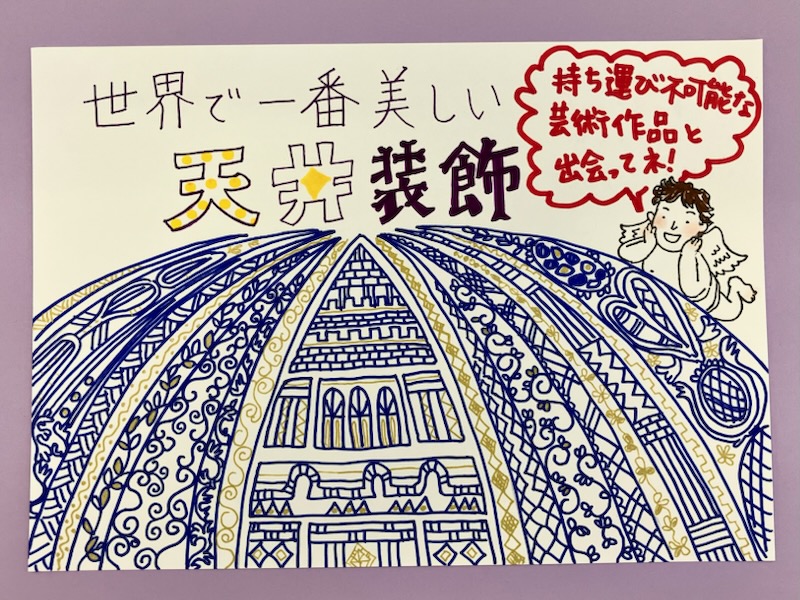 世界で一番美しい
天井装飾
持ち運び不可能な
芸術作品と
出会ってネ!